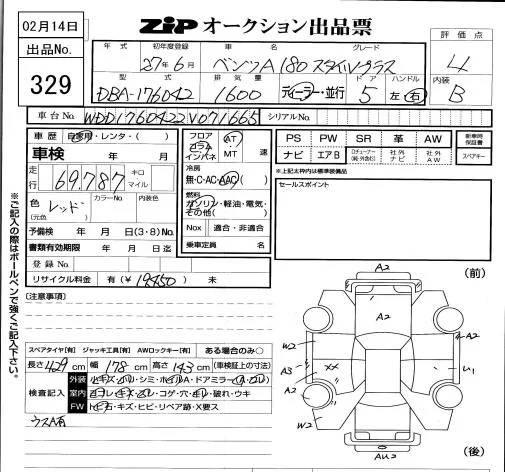 02月14日
ZIP オークション出品票
出品No.
329
評価点
4
内装
B
年式 初年度登録 車名 グレード
27年6月 ベンツA180 スタイルグラス
型式 排気量 ドア ハンドル
DBA-176042 1600 ディーラー・並行 5 左・右
車台No. WDD1760422V071665 シリアルNo.
車歴 自家用・レンタ・( )
車検 年 月
走行 69.787 キロ マイル
色(元色) レッド カラーNo. 内装色
予備検 年 月 日(3・8)No.
書類有効期限 年 月 日迄
登録No.
リサイクル料金 有(¥ ) 未
フロア コラム インパネ AT MT 速
冷房 無・C・AC・AAC( )
燃料 ガソリン・軽油・電気・その他( )
Nox 適合・非適合
乗車定員 名
PS PW SR 革 AW 新車時保証書
ナビ エアB 社外ナビ 社外AW スペアキー
*上記太枠内は標準装備品
セールスポイント
※ご記入の際はボールペンで強くご記入下さい。
(注意事項)
スペアタイヤ[有] ジャッキ工具[有] AWロックキー[有] ある場合のみ○
長さ 429 cm 幅 178 cm 高さ 143 cm (車検証上の寸法)
検査記入
外装 小キズ・凹・シミ・ホイルA・ドアミラー(A・凹)
室内 ヨゴレ・キズ・スレ・コゲ・穴・凹・破れ・ウキ
FW トビ石・キズ・ヒビ・リペア跡・X要ス
ウスA有
(前)
A2
A2
A2
W2
A3
XX
U1
A2
W2
AU2
(後)